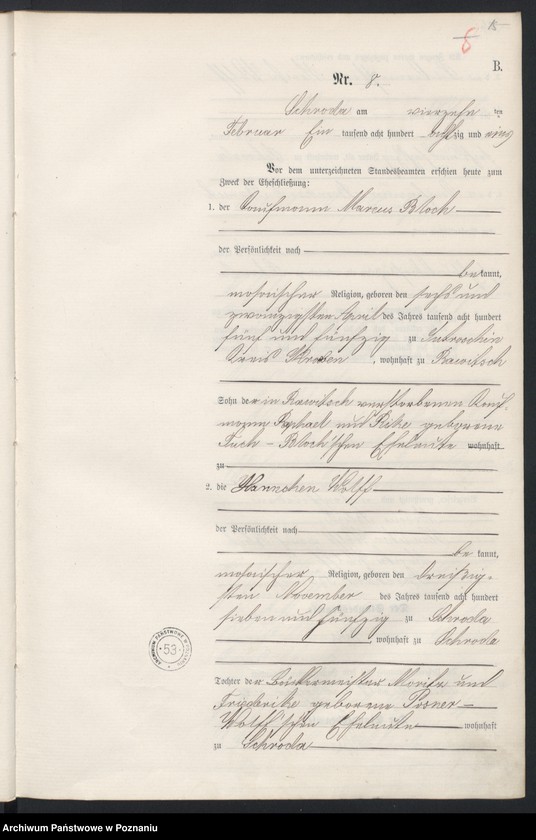 8
B.
Nr. 8.
Schroda am vierzehn ten
Februar Ein tausend acht hundert achtzig und
Vor dem unterzeichneten Standesbeamten erschien heute zum
Zweck der Eheschließung:
1. der Kaufmann Marcus Bloch
der Persönlichkeit nach
bekannt,
mosaischer Religion, geboren den sechs und
zwanzigsten April des Jahres tausend acht hundert
fünf und fünfzig zu Jutroschin
Kreis Kroeben, wohnhaft zu Rawitsch
Sohn der in Rawitsch verstorbenen Kauf-
mann Raphael und Rike geborene
Tuch - Bloch'schen Eheleute wohnhaft
zu
2. die Hannchen Wolff
der Persönlichkeit nach
be kannt,
mosaischer Religion, geboren den dreißig-
sten November des Jahres tausend acht hundert
sieben und fünfzig zu Schroda
wohnhaft zu Schroda
Tochter der Bäckermeister Moritz und
Friederike geborene Posner-
Wolff'schen Eheleute wohnhaft
zu Schroda
53
Archiwum Państwowe w Poznaniu